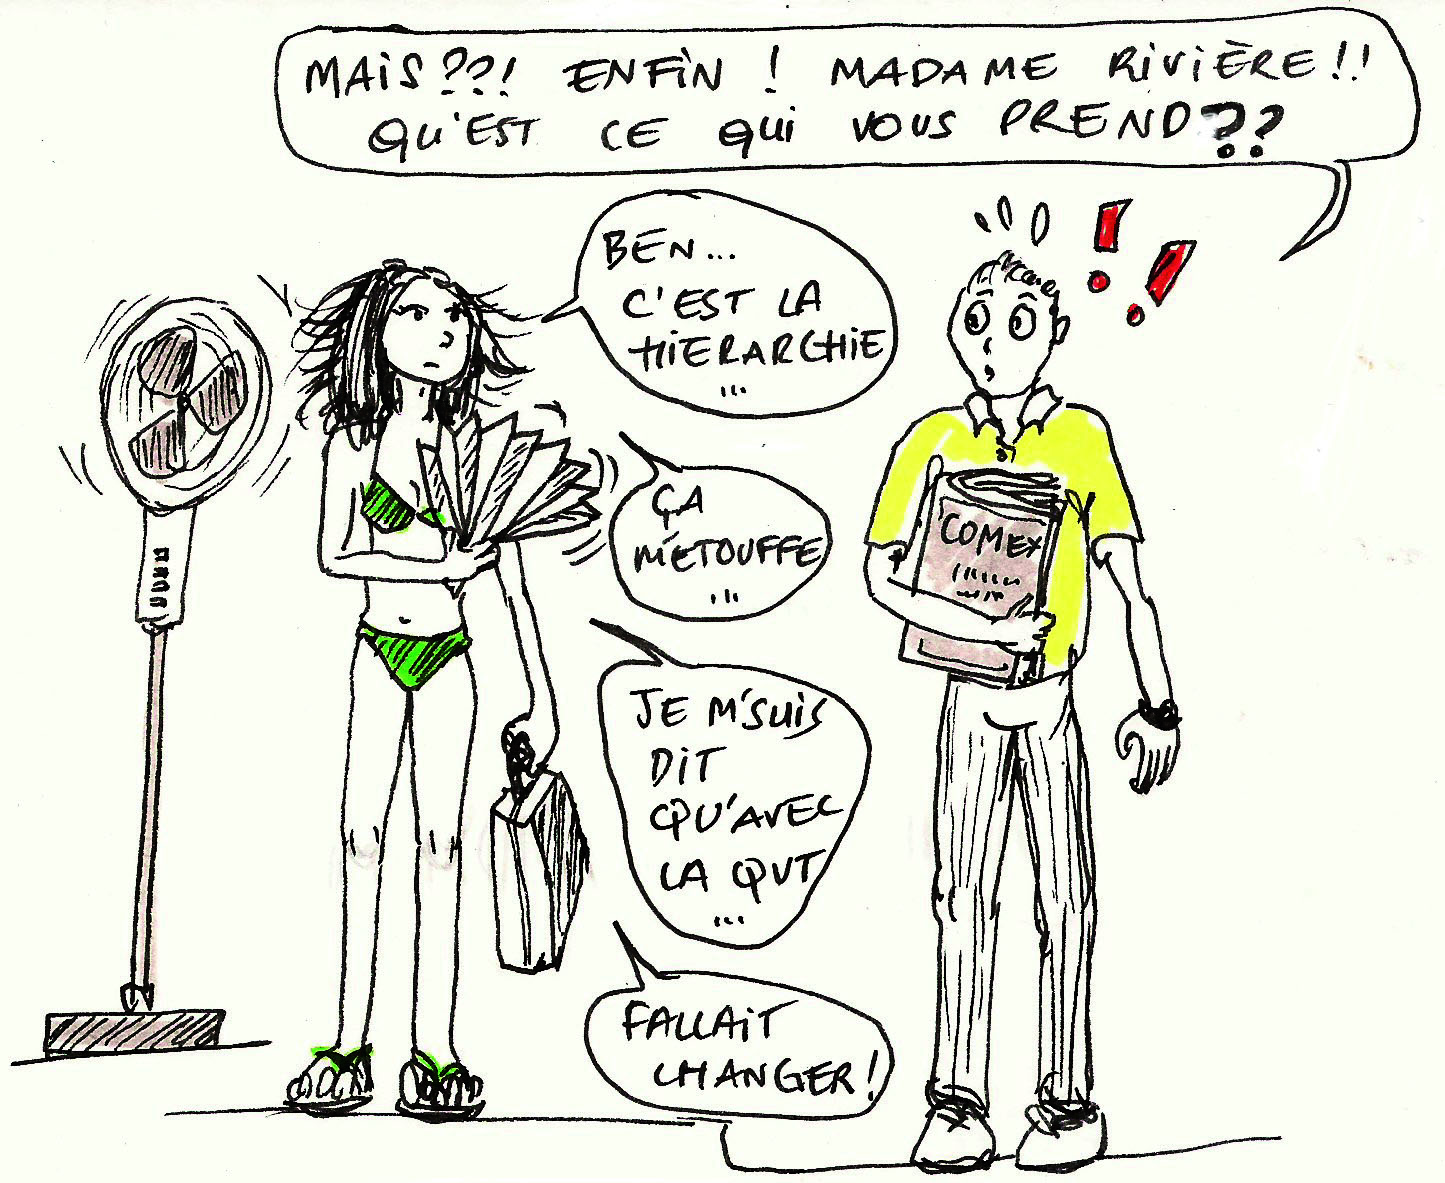 MAiS??! ENFiN ! MADAME RiViÈRE!!
QU'EST CE QUi VOUS PREND??
BEN...
C'EST LA
HiERARCHiE
...
ÇA
M'ETOUFFE
...
JE M'SUiS
DiT
QU'AVEC
LA QVT
...
FALLAiT
CHANGER!
COMEX